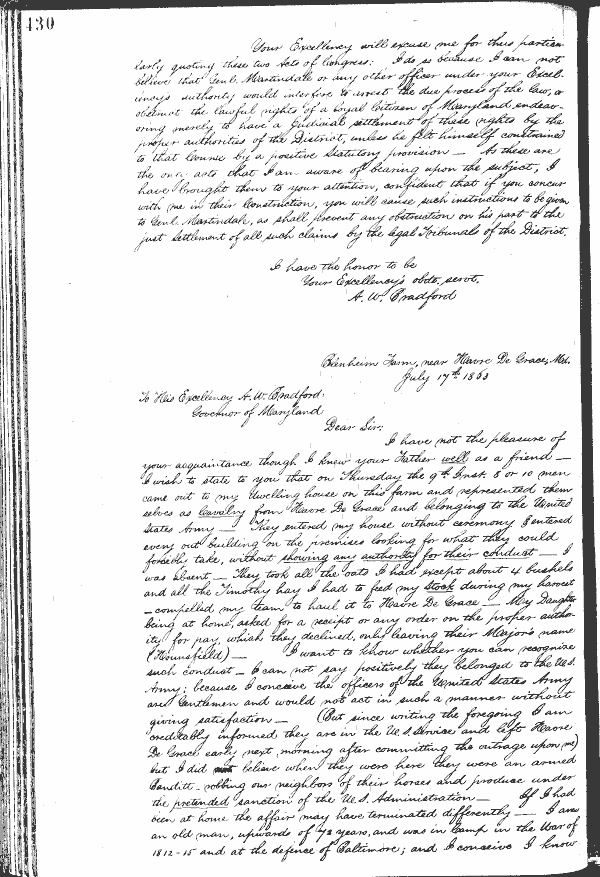 430
Your Excellency will excuse me for thus particu-
larly quoting these two Acts of Congress: I do so because I can not
believe that Genl. Martindale or any other officer under your Excel-
lency's authority would interfere to arrest the due process of the law, or
obstruct the lawful rights of a loyal Citizen of Maryland endeav-
oring merely to have a Judicial settlement of these rights by the
proper authorities of the District, unless he felt himself constrained
to that Course by a positive Statutory provision — As these are
the only acts that I am aware of bearing upon the subject, I
have brought them to your attention, confident that if you concur
with me in their Construction, you will cause such instructions to be given
to Genl. Martindale, as shall prevent any obstruction on his part to the
just settlement of all such claims by the legal Tribunals of the District.
I have the honor to be
Your Excellency's obdt. servt.
A. W. Bradford
Blenheim Farm, near Havre De Grace, Md.
July 17th 1863
To His Excellency A. W. Bradford,
Governor of Maryland
Dear Sir:
I have not the pleasure of
your acquaintance though I knew your Father well as a friend —
I wish to state to you that on Thursday the 9th Inst. 8 or 10 men
came out to my dwelling house on this farm and represented them
selves as Cavalry from Havre De Grace and belonging to the United
States Army — They entered my house without ceremony & entered
every out building on the premises looking for what they could
forcibly take, without showing any authority for their conduct — I
was absent — They took all the oats I had except about 4 bushels
and all the Timothy hay I had to feed my stock during my harvest
— compelled my team to haul it to Havre De Grace — My Daughter
being at home, asked for a receipt or any order on the proper author
ity for pay, which they declined, only leaving their Major's name
(Hounsfield) — I want to know whether you can recognise
such conduct — I can not say positively they belonged to the U.S.
Army; because I conceive the officers of the United States Army
are Gentlemen and would not act in such a manner without
giving satisfaction — (But since writing the foregoing I am
creditably informed they are in the U.S. service and left Havre
De Grace early next morning after committing the outrage upon me)
but I did not believe when they were here they were an armed
Banditti — robbing our neighbors of their horses and produce under
the pretended sanction of the U.S. Administration — If I had
been at home the affair may have terminated differently — I am
an old man, upwards of 72 years, and was in Camp in the War of
1812-15 and at the defence of Baltimore; and I conceive I know